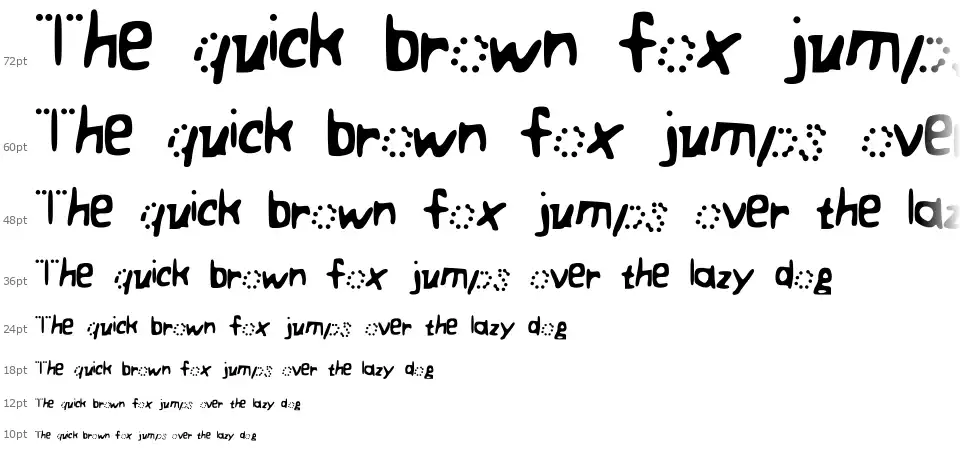 72pt The quick brown fox jump
60pt The quick brown fox jumps ove
48pt The quick brown fox jumps over the laz
36pt The quick brown fox jumps over the lazy dog
24pt The quick brown fox jumps over the lazy dog
18pt The quick brown fox jumps over the lazy dog
12pt The quick brown fox jumps over the lazy dog
10pt The quick brown fox jumps over the lazy dog